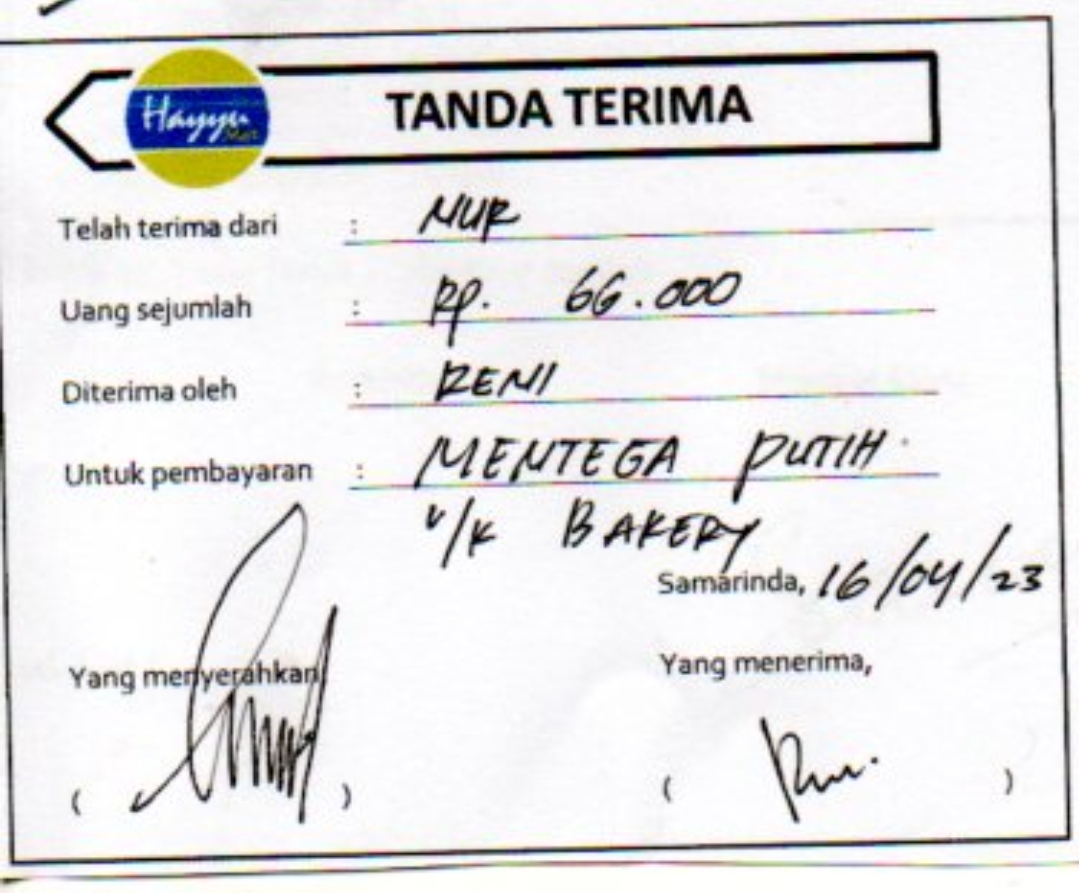 Hayyu Mart
TANDA TERIMA
Telah terima dari : NUR
Uang sejumlah : Rp. 66.000
Diterima oleh : RENI
Untuk pembayaran : MENTEGA PUTIH
U/K BAKERY
Samarinda, 16/04/23
Yang menyerahkan Yang menerima,
( ) ( )